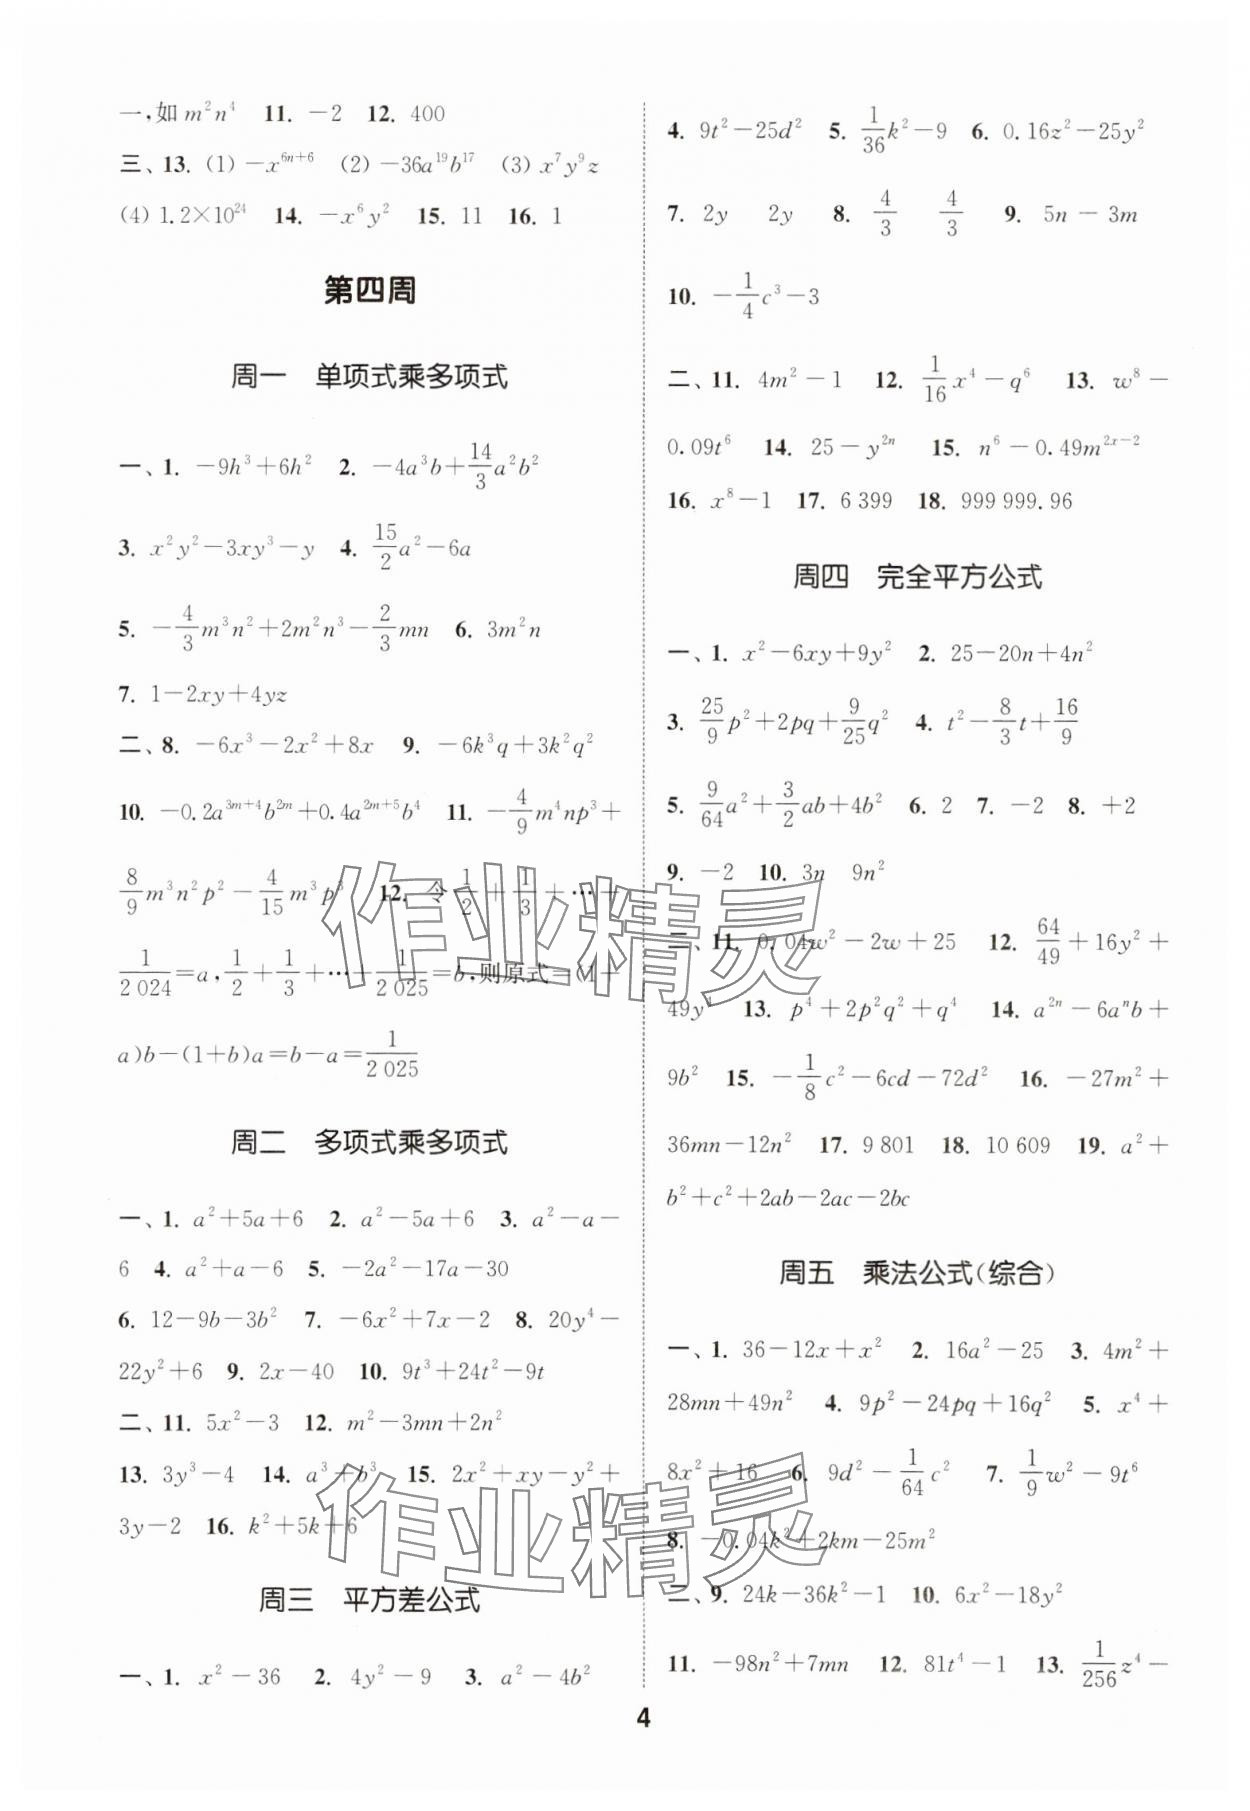 一,如 m²n⁴ 11. －2 12. 400
三、13. (1) －x⁶ⁿ⁺⁶ (2) －36a¹⁹b¹⁷ (3) x⁷y⁹z
(4) 1.2×10²⁴ 14. －x⁶y² 15. 11 16. 1
第四周
周一 单项式乘多项式
一、1. －9h³＋6h² 2. －4a³b＋\frac{14}{3}a²b²
3. x²y²－3xy³－y 4. \frac{15}{2}a²－6a
5. －\frac{4}{3}m³n²＋2m²n³－\frac{2}{3}mn 6. 3m²n
7. 1－2xy＋4yz
二、8. －6x³－2x²＋8x 9. －6k³q＋3k²q²
10. －0.2a^{3m+4}b^{2m}＋0.4a^{2m+5}b⁴ 11. －\frac{4}{9}m⁴np³＋
\frac{8}{9}m³n²p²－\frac{4}{15}m³p³ 12. 令\frac{1}{2}＋\frac{1}{3}＋…＋
\frac{1}{2 024}＝a,\frac{1}{2}＋\frac{1}{3}＋…＋\frac{1}{2 025}＝b,则原式＝(1＋
a)b－(1＋b)a＝b－a＝\frac{1}{2 025}
周二 多项式乘多项式
一、1. a²＋5a＋6 2. a²－5a＋6 3. a²－a－
6 4. a²＋a－6 5. －2a²－17a－30
6. 12－9b－3b² 7. －6x²＋7x－2 8. 20y⁴－
22y²＋6 9. 2x－40 10. 9t³＋24t²－9t
二、11. 5x²－3 12. m²－3mn＋2n²
13. 3y³－4 14. a³＋b³ 15. 2x²＋xy－y²＋
3y－2 16. k²＋5k＋6
周三 平方差公式
一、1. x²－36 2. 4y²－9 3. a²－4b²
4. 9t²－25d² 5. \frac{1}{36}k²－9 6. 0.16z²－25y²
7. 2y 2y 8. \frac{4}{3} \frac{4}{3} 9. 5n－3m
10. －\frac{1}{4}c³－3
二、11. 4m²－1 12. \frac{1}{16}x⁴－q⁶ 13. w⁸－
0.09t⁶ 14. 25－y²ⁿ 15. n⁶－0.49m^{2x-2}
16. x⁸－1 17. 6 399 18. 999 999.96
周四 完全平方公式
一、1. x²－6xy＋9y² 2. 25－20n＋4n²
3. \frac{25}{9}p²＋2pq＋\frac{9}{25}q² 4. t²－\frac{8}{3}t＋\frac{16}{9}
5. \frac{9}{64}a²＋\frac{3}{2}ab＋4b² 6. 2 7. －2 8. ＋2
9. －2 10. 3n 9n²
二、11. 0.04w²－2w＋25 12. \frac{64}{49}＋16y²＋
49y⁴ 13. p⁴＋2p²q²＋q⁴ 14. a²ⁿ－6aⁿb＋
9b² 15. －\frac{1}{8}c²－6cd－72d² 16. －27m²＋
36mn－12n² 17. 9 801 18. 10 609 19. a²＋
b²＋c²＋2ab－2ac－2bc
周五 乘法公式(综合)
一、1. 36－12x＋x² 2. 16a²－25 3. 4m²＋
28mn＋49n² 4. 9p²－24pq＋16q² 5. x⁴＋
8x²＋16 6. 9d²－\frac{1}{64}c² 7. \frac{1}{9}w²－9t⁶
8. －0.04k²＋2km－25m²
二、9. 24k－36k²－1 10. 6x²－18y²
11. －98n²＋7mn 12. 81t⁴－1 13. \frac{1}{256}z⁴－
4
作业精灵
作业精灵